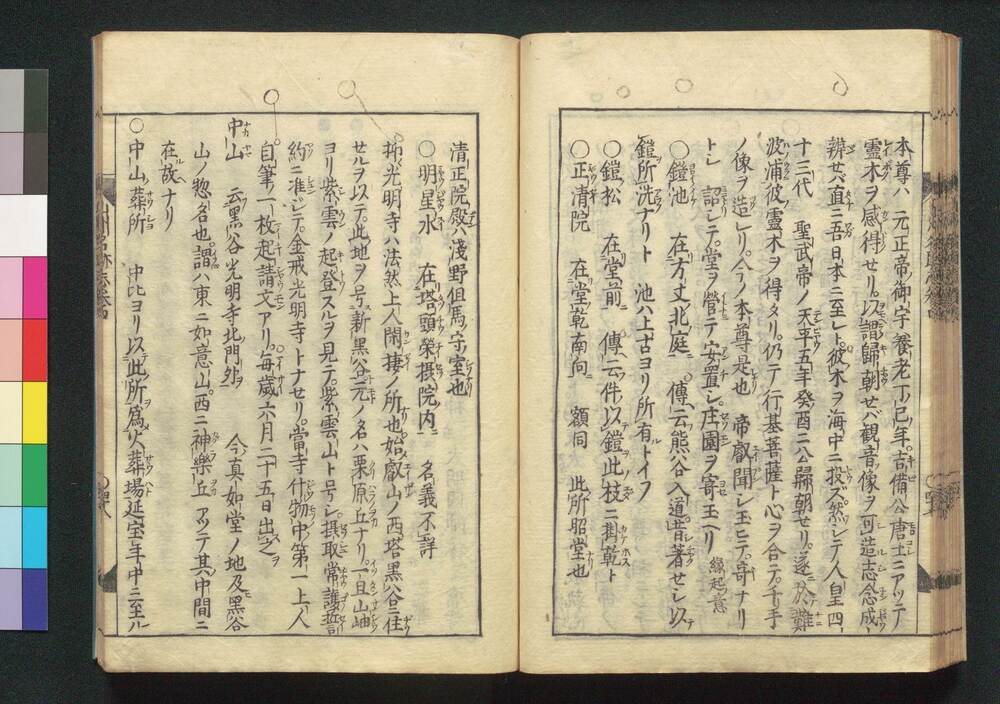 本尊ハ 元正帝ノ御宇養老丁巳年吉備公唐土ニアッテ
霊木ヲ感得セリ以謂帰朝セバ観音ノ像ヲ可造志念成
辨セバ直ニ吾日本ニ至レト彼木ヲ海中ニ投ズ然シテ人皇四
十三代 聖武帝ノ天平五年癸酉ニ公歸朝セリ遂於難
波浦彼霊木ヲ得タリ仍テ行基菩薩ト心ヲ合テ千手
ノ像ヲ造レリ今ノ本尊是也 帝叡聞シ玉ヒテ寄ナリ
トシ 詔シテ堂ヲ營テ安置シ庄園ヲ寄玉ヘリ 縁起ノ意
○鎧池 在方丈北庭 傳云熊谷入道昔著セシ以
鎧所洗ナリト 池ハ上古ヨリ所有トイフ
○鎧松 在堂前 傳云件以鎧此枝ニ掛乾ト
○正清院 在堂乾南向 額同 此所昭堂也
清正院殿ハ淺野但馬守室也
○明星水 在塔頭榮摂院内 名義不詳
抑光明寺ハ法然上人閑棲ノ所也始叡山ノ西塔黒谷ニ住
サルヲ以テ此地ヲ号新黒谷元ノ名ハ栗原丘ナリ且山岫
ヨリ紫雲ノ起登スルヲ見テ紫雲山ト号シ摂取常護誓
約ニ准ジテ金戒光明寺トナセリ當寺什物中第一上人
自筆一枚起請文アリ毎歳六月二十五日出之
中山 云黒谷光明寺北門外 今真如堂ノ地及黒谷
山ノ惣名也謂ハ東ニ如意山西ニ神樂丘アッテ其中間ニ
在故ナリ
○中山葬所 中比ヨリ以此所為火葬場延宝年中ニ至ル